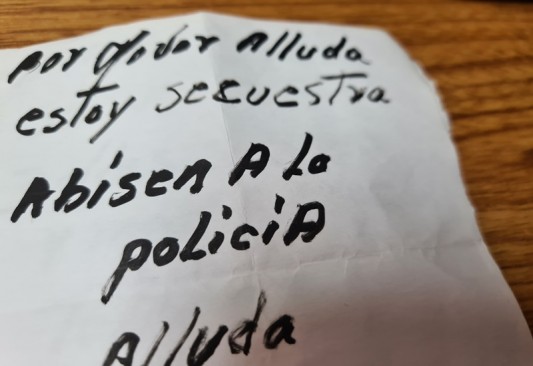 por favor Alluda
estoy secuestra
Abisen A la
policiA
Alluda